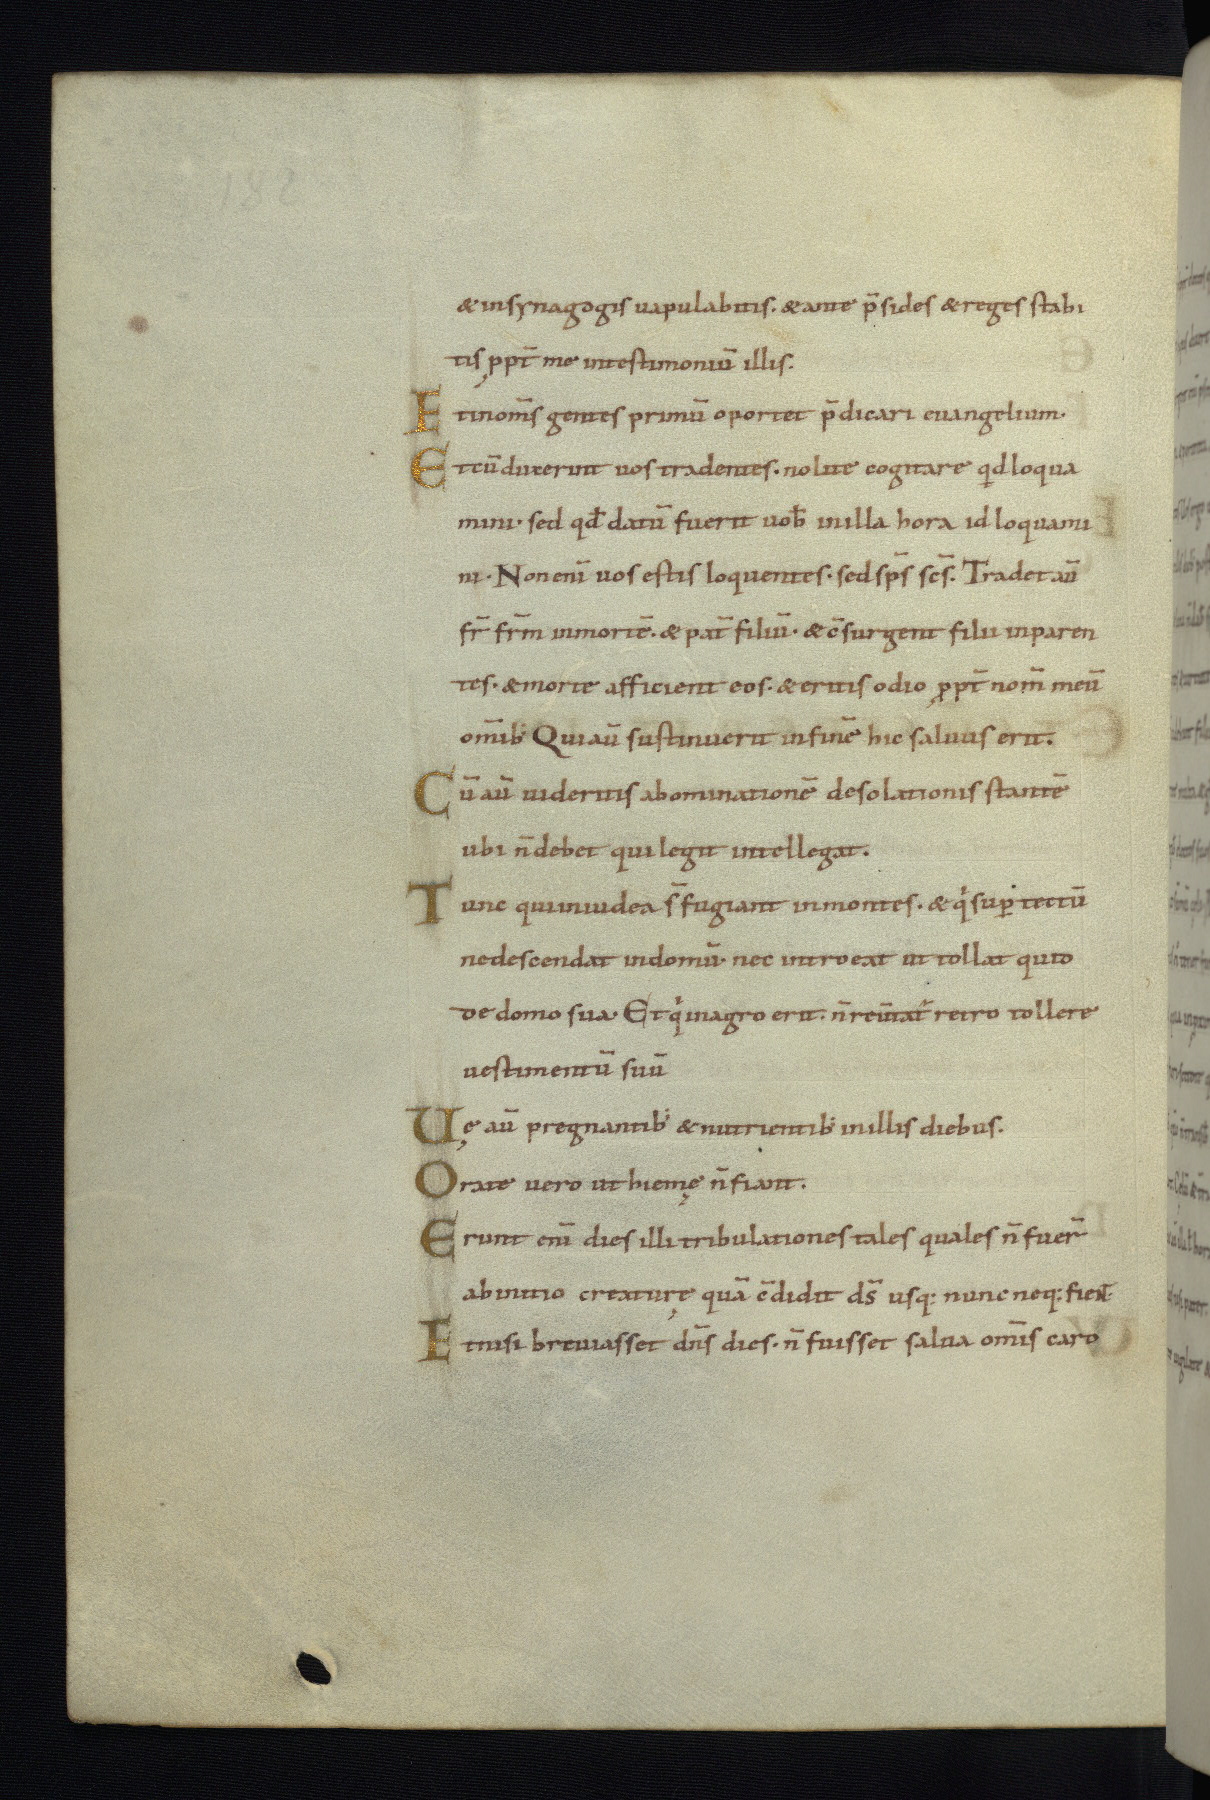 & insynagogis uapulabitis. & ante p̄sides & reges stabi
tis ppt̄ me intestimoniū illis.
Et inom̄s gentes primū oportet p̄dicari euangelium.
Et cū duxerint uos tradentes. nolite cogitare qd loqua
mini. sed qđ datū fuerit uob̄ inilla hora id loquami
ni. Non enī uos estis loquentes. sed sp̄s sc̄s. Tradet aū
fr̄ fr̄m inmortē. & pat̄ filiū. & c̄surgent filii inparen
tes. & morte afficient eos. & eritis odio ppt̄ nom̄ meū
om̄ib; Qui aū sustinuerit infinē hic saluus erit.
Cū aū uideritis abominationē desolationis stantē
ubi n̄ debet qui legit intellegat.
Tunc qui iniudea s̄ fugiant inmontes. & qͥ sup̱ tectū
ne descendat indomū. nec introeat ut tollat quid
de domo sua. Et qͥ inagro erit. n̄ reūtat̄ retro tollere
uestimentū suū
Uę aū pregnantib; & nutrientib; inillis diebus.
Orate uero ut hiemę n̄ fiant.
Erunt enī dies illi tribulationes tales quales n̄ fuer̄
abinitio creaturę quā c̄didit ds̄ usq; nunc neq; fient.
Et nisi breuiasset dn̄s dies. n̄ fuisset salua om̄is caro